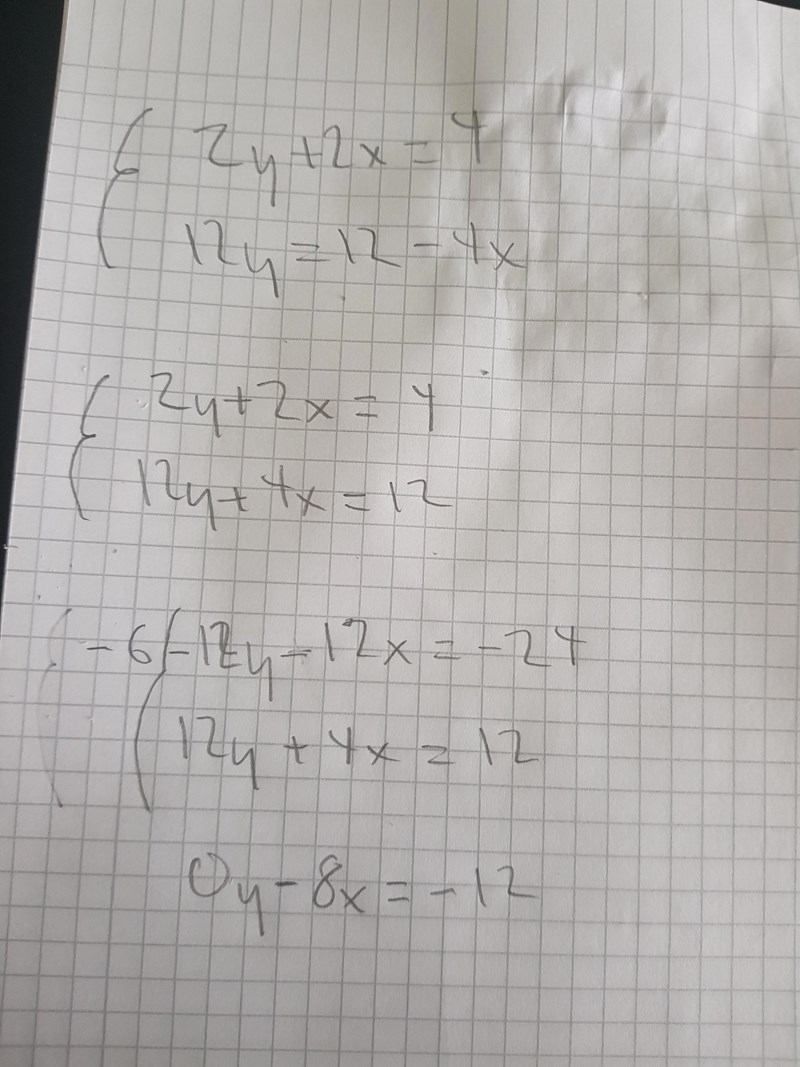 2y+2x=4
12y=12-4x
2y+2x=4
12y+4x=12
-6(-12y-12x=-24
12y+4x=12
0y-8x=-12